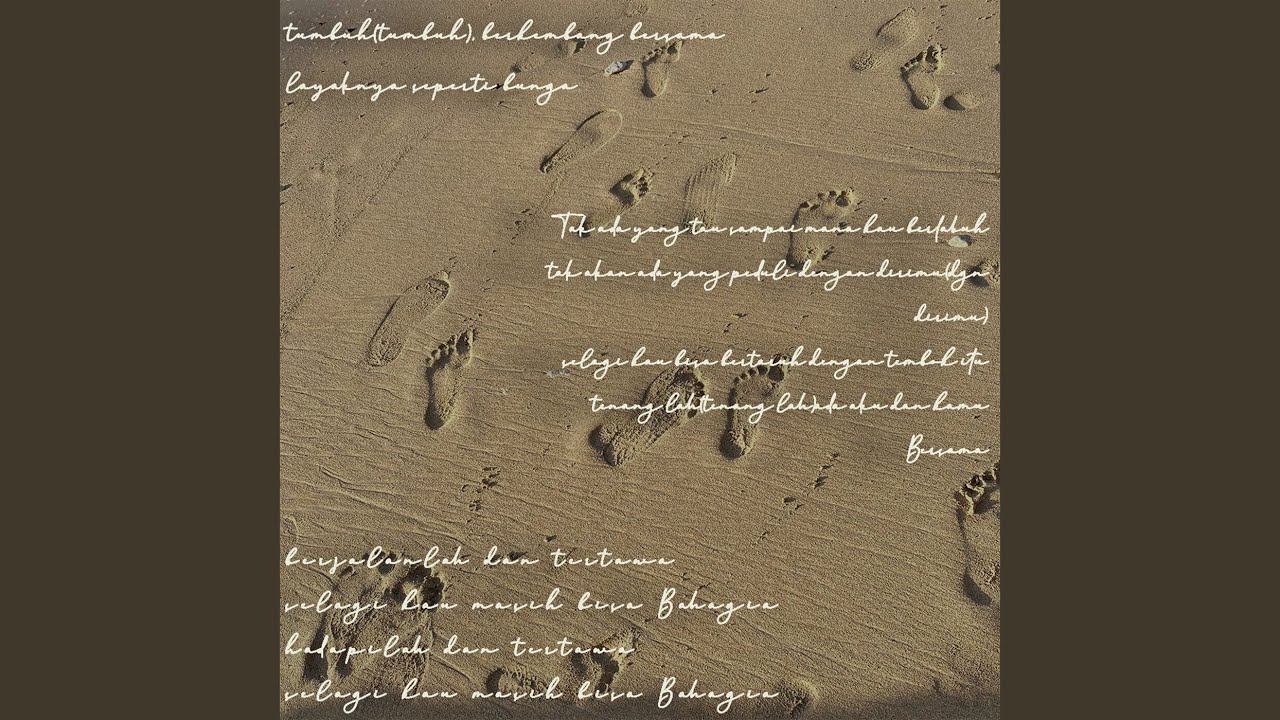 tumbuh(tumbuh), berkembang bersama
layaknya seperti bunga
Tak ada yang tau sampai mana kau berlabuh
tak akan ada yang peduli dengan dirimu(dgn
dirimu)
selagi kau bisa berteduh dengan tembok itu
tenang lah(tenang lah)ada aku dan kamu
Bersama
berjalanlah dan tertawa
selagi kau masih bisa Bahagia
hadapilah dan tertawa
selagi kau masih bisa Bahagia